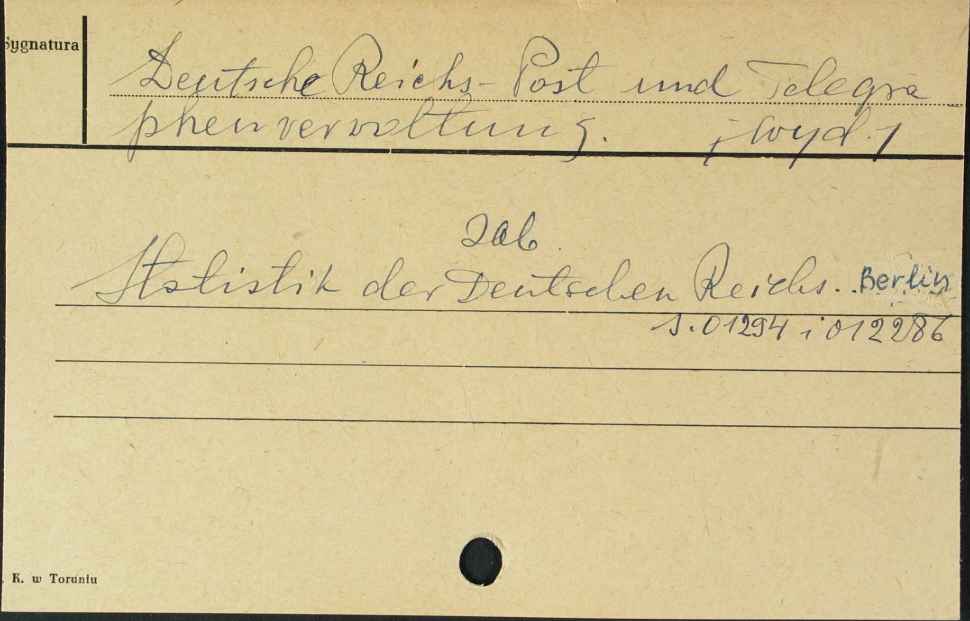 Sygnatura
Deutsche Reichs-Post und Telegra
phenverwaltung. /wyd./
zob.
Statistik der Deutschen Reichs. Berlin
s. 01294 i 012286
K. w Toruniu